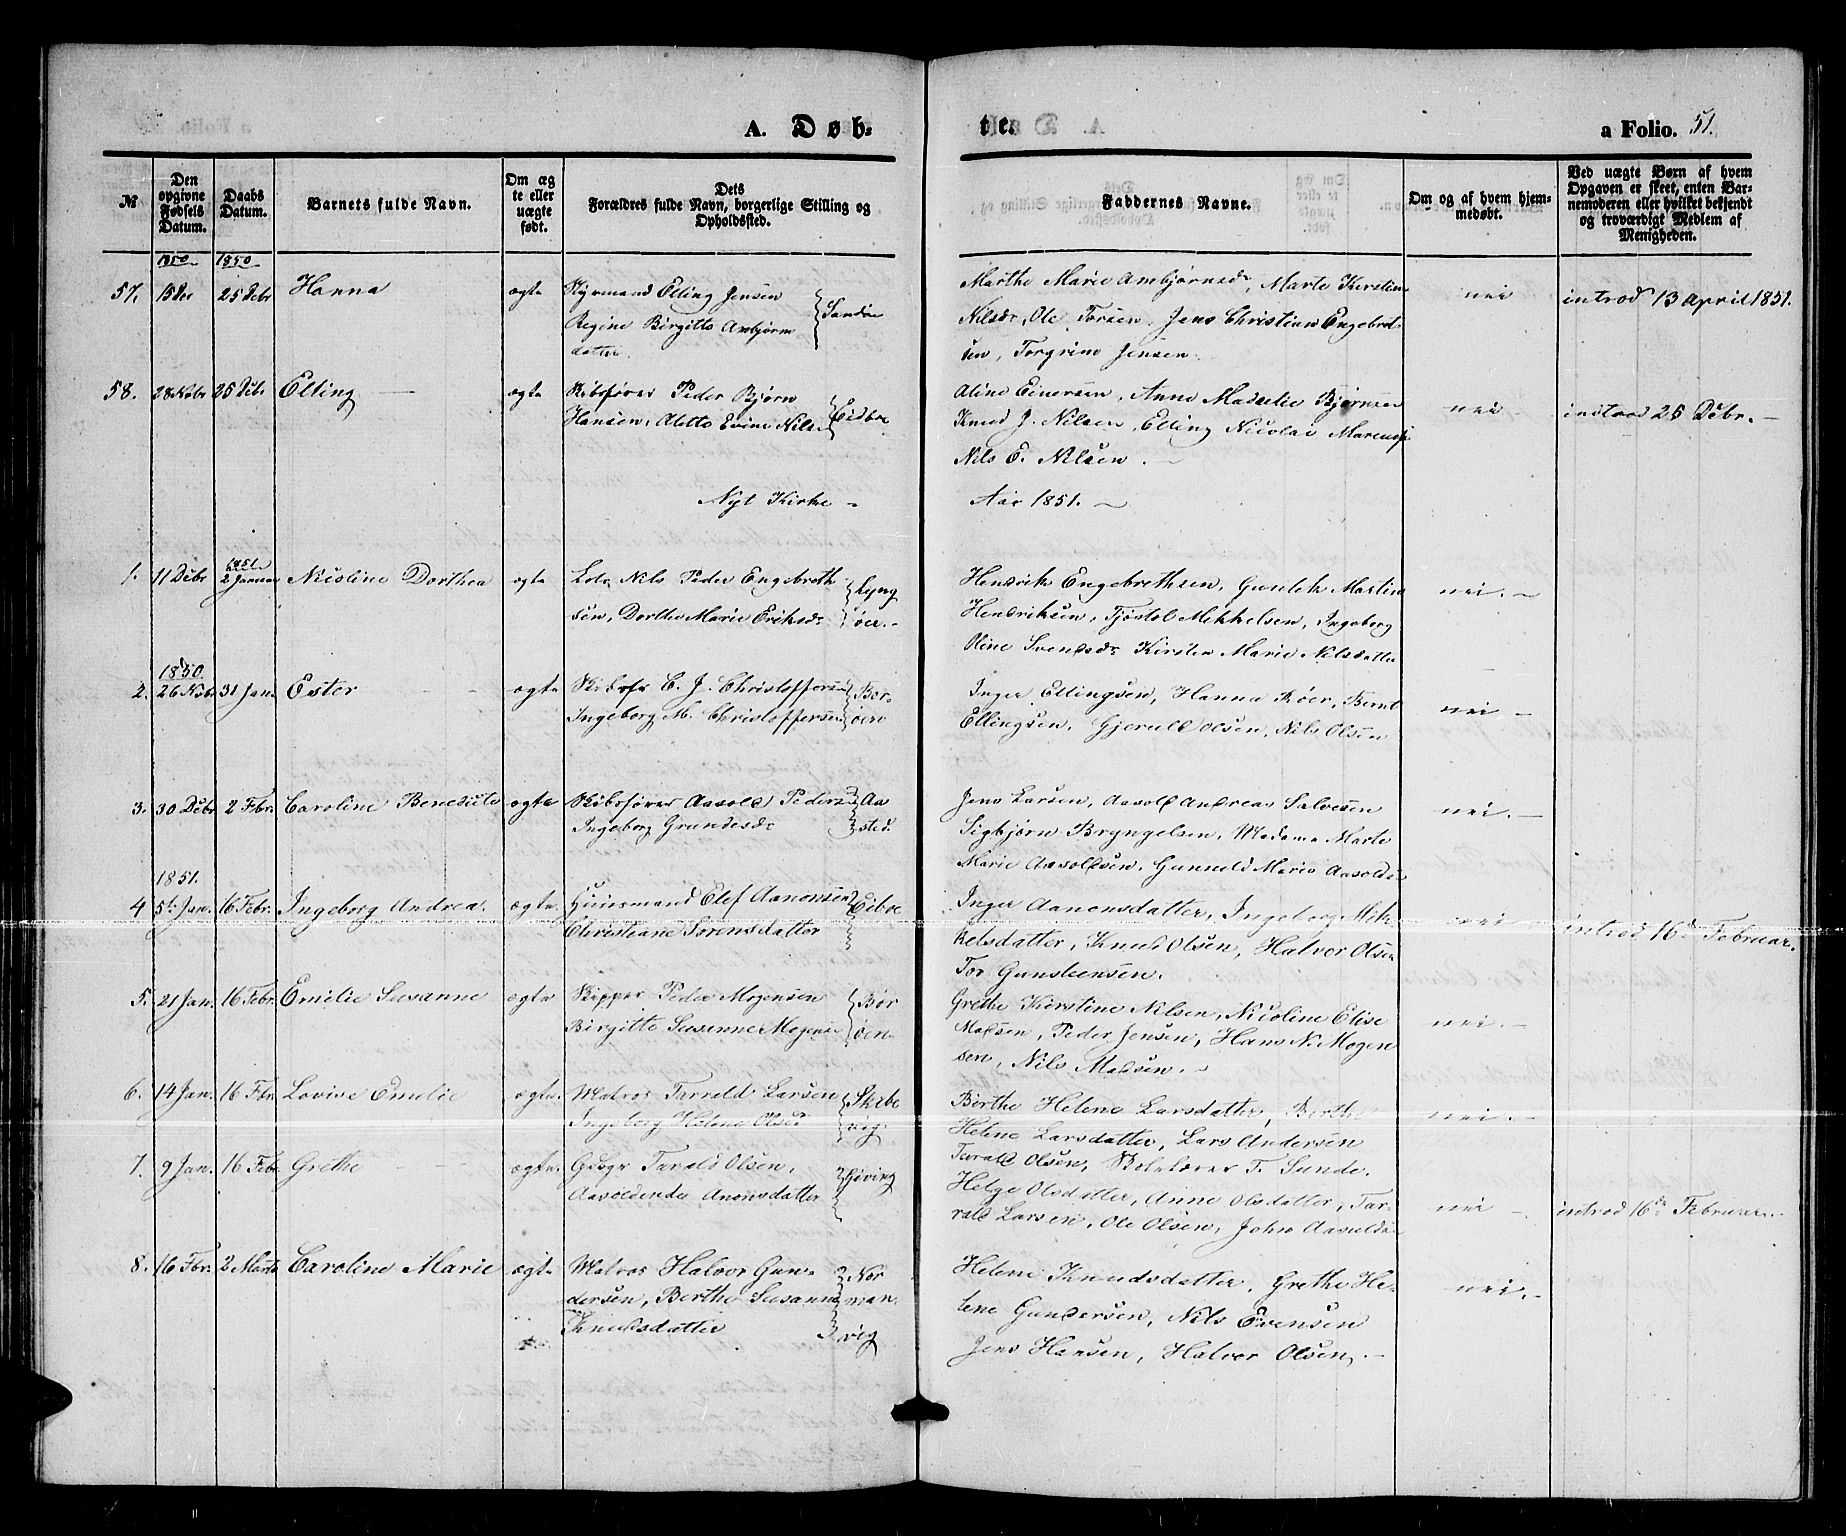 A. Døb-
te.
a Folio. 51.
№
Den opgivne Fødsels Datum.
Daabs Datum.
Barnets fulde Navn.
Om ægte eller uægte født.
Dets Forældres fulde Navn, borgerlige Stilling og Opholdssted.
Faddernes Navne.
Om og af hvem hjemmedøbt.
Ved uægte Børn af hvem Opgaven er skeet, enten Barnemoderen eller hvilket bekjendt og troværdigt Medlem af Menigheden.
1850 1850
57. 15 Dec 25 Debr Hanna ægte Styrmand Elling Jensen
Regine Birgitte Ambjørns
datter. Sandøe
Marthe Marie Ambjørnsdr, Marte Kirstine
Nilsdr, Ole Torsen, Jens Christian Engebret-
sen, Torgrim Jensen.
nei
introd 13 April 1851.
58. 28 Nobr 26 Debr Elling ægte Skibsfører Peder Bjørn
Hansen, Alette Evine Nils Eidboe
Aline Einersen, Anne Madselie Bjørnsen
Knud J. Nilsen, Elling Nicolai
Nils E. Nilsen.
nei
introd 26 Debr.
Nyt Kirke-
Aar 1851.
1851
1. 11 Debr 2 Januar Nilsline Dorthea ægte Lods Nils Peder Engebreth
sen, Dorthe Marie Eriksdr Lyng
øer.
Hendrik Engebrethsen, Gunlek Martin
Hendriksen, Tjøstol Mekkelsen, Ingeborg
Oline Svendsdr Kirsten Marie Nilsdatter
nei.
1850.
2. 26 Nobr 31 Jan. Ester ægte Skibsfr C. J. Christoffersen
Ingeborg M. Christoffersen Bor-
øen
Inger Ellingsen, Hanna Røer, Bernt
Ellingsen, Gjeruld Olsen, Nils Olsen
nei
3. 30 Debr 2 Febr. Caroline Benedicte ægte Skibsfører Aasold Peders
Ingeborg Grundesdr Aa
sted.
Jens Larsen, Aasold Andreas Salvesen
Sigbjørn Bryngelsen, Madame Marte
Marie Aasoldsen, Gunneld Marie Aasoldsr
nei.
1851.
4 5te Jan. 16 Febr. Ingeborg Andrea. ægte. Huusmand Elef Aanonsen
Christiane Sørensdatter Eiboe
Inger Aanonsdatter, Ingeborg Mek-
kelsdatter, Knud Olsen, Halvor Olsen
Tor Gunsteensen.
nei
introd 16de Februar.
5. 21 Jan. 16 Febr. Emilie Susanne ægte Skipper Peder Mogensen
Birgitte Susanne Mogens Bor
øen
Grethe Kirstine Nilsen, Nicoline Elise
Madsen, Peder Jensen, Hans N. Mogen
sen, Nils Madsen.
nei.
6. 14 Jan. 16 Fbr. Lovise Emelie ægte. Matros Tarald Larsen
Ingeborg Helene Olsd Skibe
vig
Berthe Helene Larsdatter, Berthe
Helene Larsdatter, Lars Andersen
Tarald Olsen, T. Sunde.
nei.
7. 9 Jan. 16 Febr Grethe ægte. Tarald Olsen,
Anonsdatter Gjeving
Helge Olsdatter, Anne Olsdatter, Tar-
rald Larsen, Ole Olsen, John Aasulds
nei
introd 16de Februar.
8. 16 Fbr. 2 Marts Caroline Marie ægte Matros Halvor Gun-
dersen, Berthe Susanne
Knudsdatter Nor
man
vig
Helene Knudsdatter, Grethe He-
lene Gundersen, Nils Evensen
Jens Hansen, Halvor Olsen,
nei.